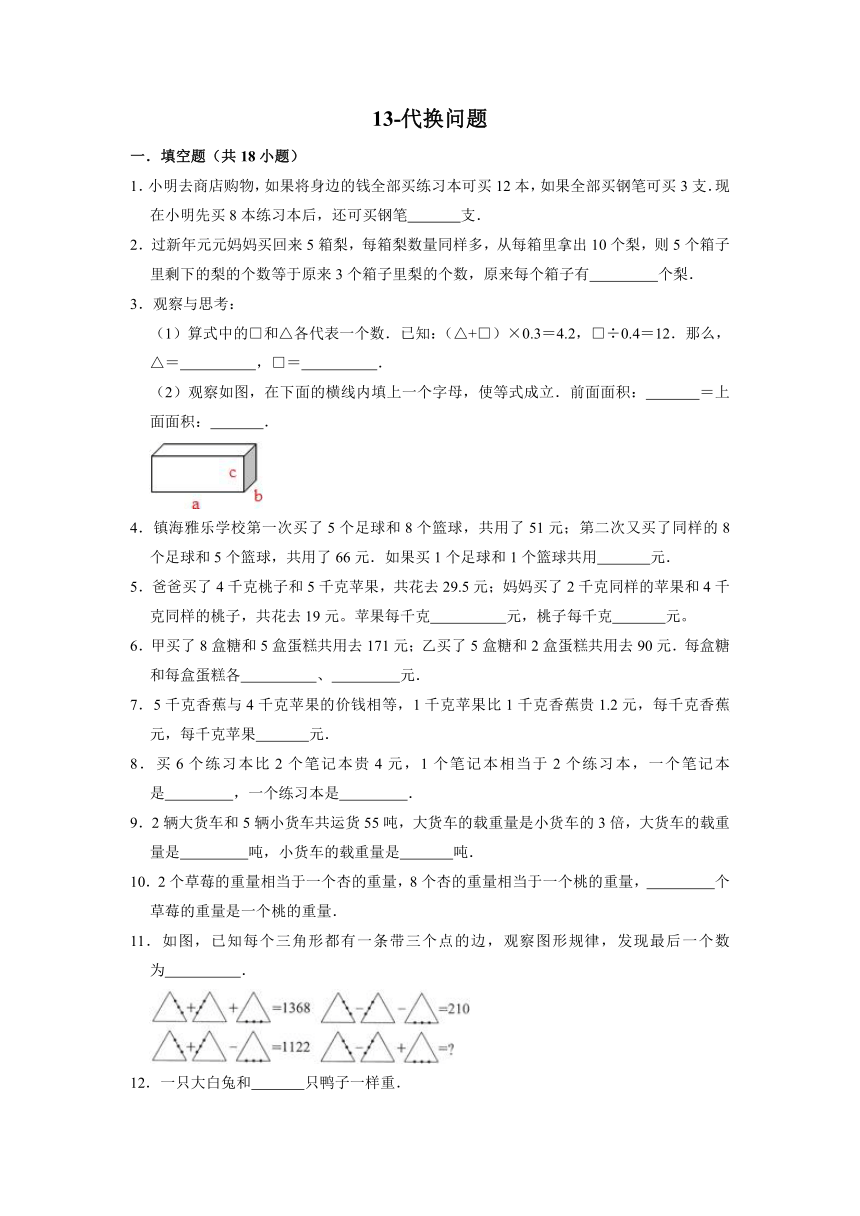 13-代换问题
一．填空题（共 18 小题）
1．小明去商店购物，如果将身边的钱全部买练习本可买 12 本，如果全部买钢笔可买 3 支．现
在小明先买 8 本练习本后，还可买钢笔______支．
2．过新年元元妈妈买回来 5 箱梨，每箱梨数量同样多，从每箱里拿出 10 个梨，则 5 个箱子
里剩下的梨的个数等于原来 3 个箱子里梨的个数，原来每个箱子有______个梨．
3．观察与思考：
（1）算式中的□和△各代表一个数．已知：（△+□）×0.3＝4.2，□÷0.4＝12．那么，
△＝______，□＝______．
（2）观察如图，在下面的横线内填上一个字母，使等式成立．前面面积：______＝上
面面积：______．
c
b
a
4．镇海雅乐学校第一次买了 5 个足球和 8 个篮球，共用了 51 元；第二次又买了同样的 8
个足球和 5 个篮球，共用了 66 元．如果买 1 个足球和 1 个篮球共用______元．
5．爸爸买了 4 千克桃子和 5 千克苹果，共花去 29.5 元；妈妈买了 2 千克同样的苹果和 4 千
克同样的桃子，共花去 19 元。苹果每千克______元，桃子每千克______元。
6．甲买了 8 盒糖和 5 盒蛋糕共用去 171 元；乙买了 5 盒糖和 2 盒蛋糕共用去 90 元．每盒糖
和每盒蛋糕各______、______元．
7．5 千克香蕉与 4 千克苹果的价钱相等，1 千克苹果比 1 千克香蕉贵 1.2 元，每千克香蕉
元，每千克苹果______元．
8．买 6 个练习本比 2 个笔记本贵 4 元，1 个笔记本相当于 2 个练习本，一个笔记本
是______，一个练习本是______．
9．2 辆大货车和 5 辆小货车共运货 55 吨，大货车的载重量是小货车的 3 倍，大货车的载重
量是______吨，小货车的载重量是______吨．
10．2 个草莓的重量相当于一个杏的重量，8 个杏的重量相当于一个桃的重量，______个
草莓的重量是一个桃的重量．
11．如图，已知每个三角形都有一条带三个点的边，观察图形规律，发现最后一个数
为______．
△+△+△=1368 △−△−△=210
△+△−△=1122 △−△+△=?
12．一只大白兔和______只鸭子一样重．